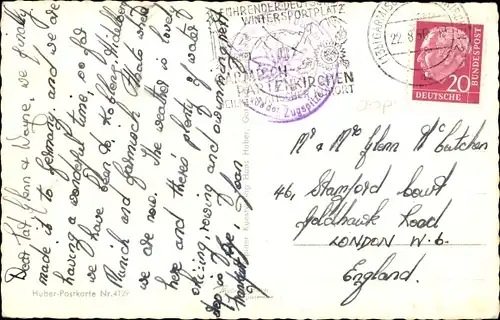 Dear Pat, Glenn & Wayne, we finally
made it to Germany and we are
having a wonderful time, so far
we have been to Koblenz, Heidelberg
Munich and Garmisch that's where
we are now. The weather is lovely
here and there's plenty of water
skiing, rowing and swimming
Joan
Huber-Postkarte Nr. 4129
FÜHRENDER DEUTSCHER
WINTERSPORTPLATZ
GARMISCH
PARTENKIRCHEN
der Zugspitze
22. 8. 56
20
DEUTSCHE
BUNDESPOST
Mr & Mrs Glenn McCutchen
46, Stamford Court
Goldhawk Road
LONDON W. 6.
England.